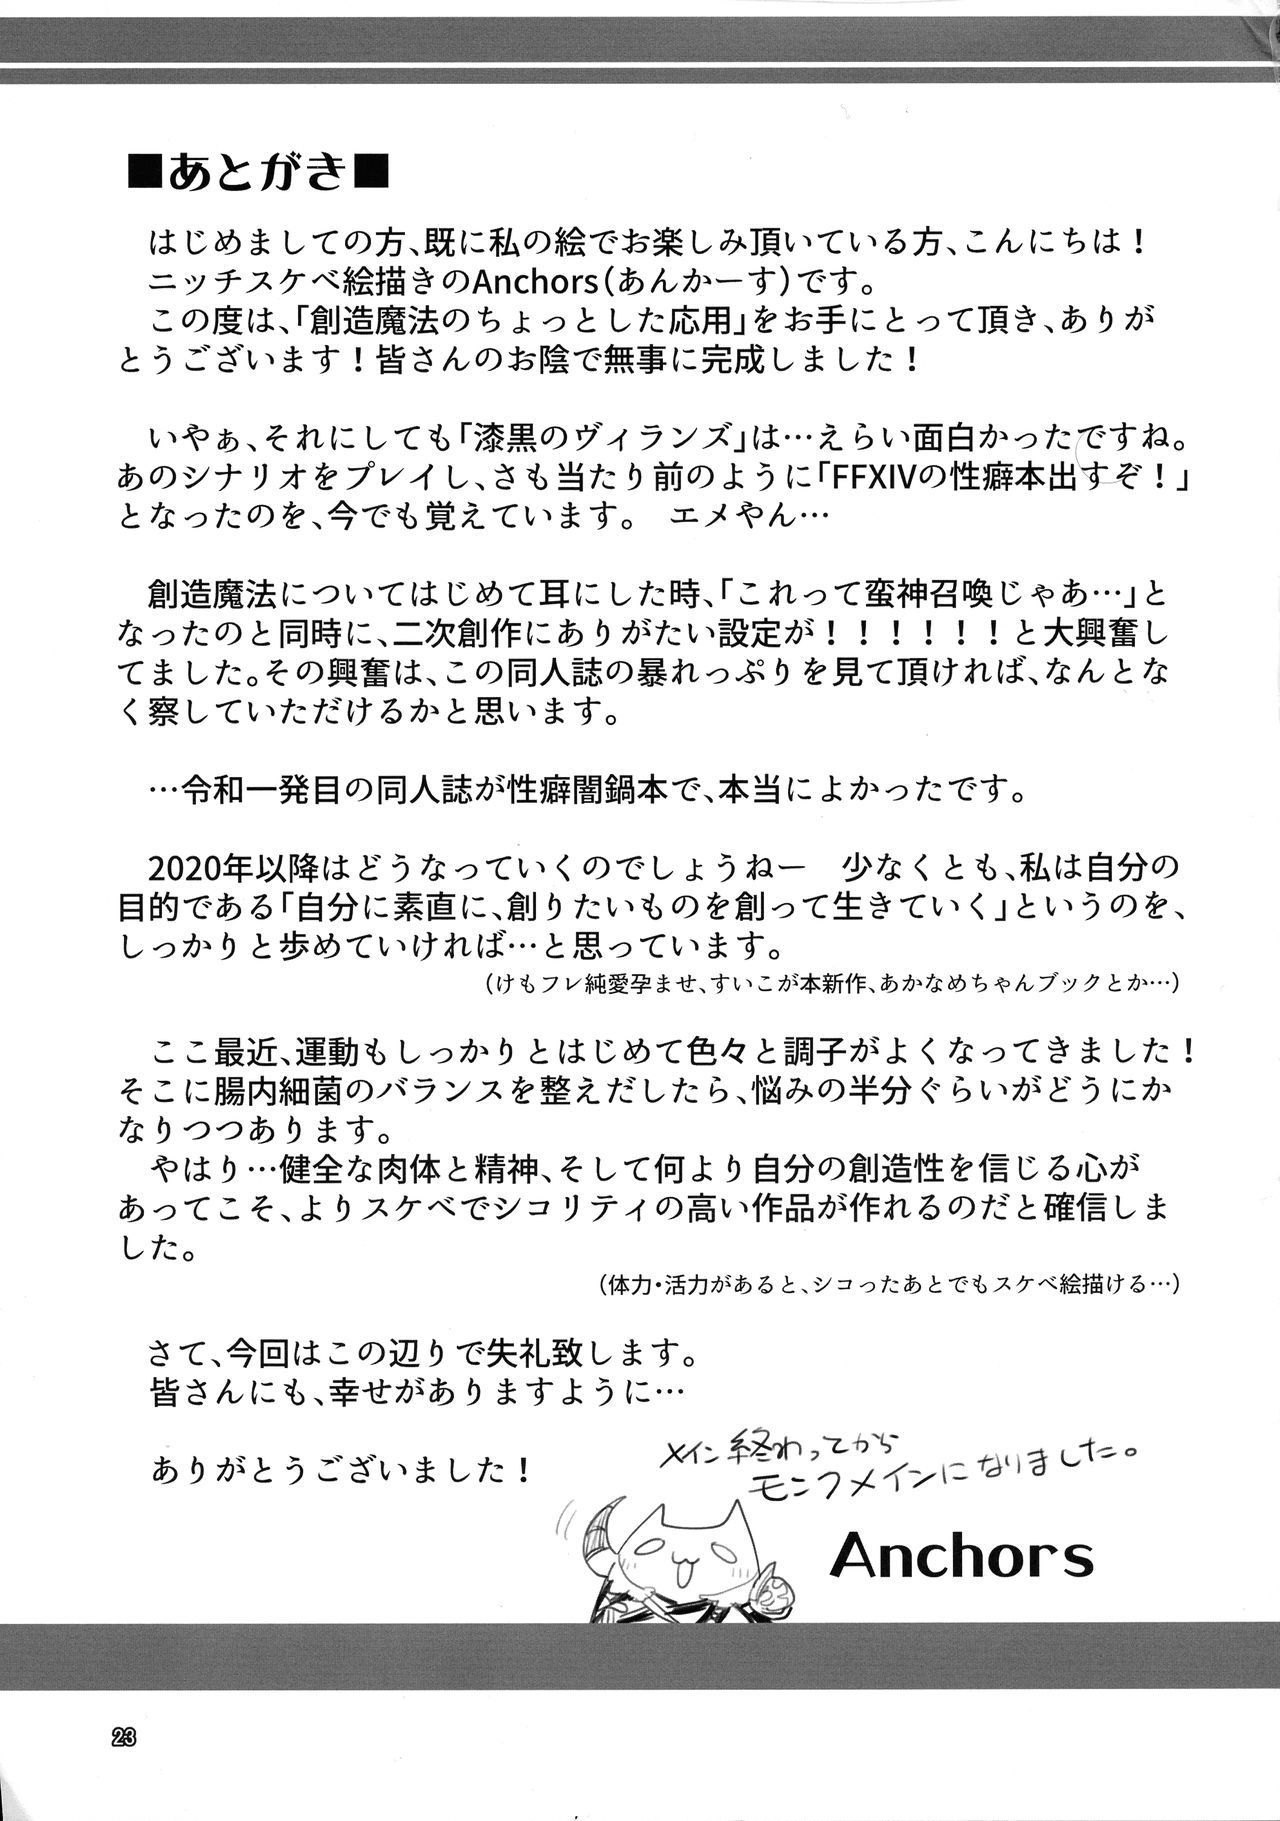 ■あとがき■
はじめましての方、既に私の絵でお楽しみ頂いている方、こんにちは！
ニッチスケベ絵描きのAnchors（あんかーす）です。
この度は、「創造魔法のちょっとした応用」をお手にとって頂き、ありが
とうございます！皆さんのお陰で無事に完成しました！
いやぁ、それにしても「漆黒のヴィランズ」は…えらい面白かったですね。
あのシナリオをプレイし、さも当たり前のように「FFXIVの性癖本出すぞ！」
となったのを、今でも覚えています。　エメやん…
創造魔法についてはじめて耳にした時、「これって蛮神召喚じゃあ…」と
なったのと同時に、二次創作にありがたい設定が！！！！！！と大興奮し
てました。その興奮は、この同人誌の暴れっぷりを見て頂ければ、なんとな
く察していただけるかと思います。
…令和一発目の同人誌が性癖闇鍋本で、本当によかったです。
2020年以降はどうなっていくのでしょうねー　少なくとも、私は自分の
目的である「自分に素直に、創りたいものを創って生きていく」というのを、
しっかりと歩めていければ…と思っています。
（けもフレ純愛孕ませ、すいこが本新作、あかなめちゃんブックとか…）
ここ最近、運動もしっかりとはじめて色々と調子がよくなってきました！
そこに腸内細菌のバランスを整えだしたら、悩みの半分ぐらいがどうにか
なりつつあります。
やはり…健全な肉体と精神、そして何より自分の創造性を信じる心が
あってこそ、よりスケベでシコリティの高い作品が作れるのだと確信しま
した。
（体力・活力があると、シコったあとでもスケベ絵描ける…）
さて、今回はこの辺りで失礼致します。
皆さんにも、幸せがありますように…
ありがとうございました！
メイン終わってから
モンクメインになりました。
Anchors
23